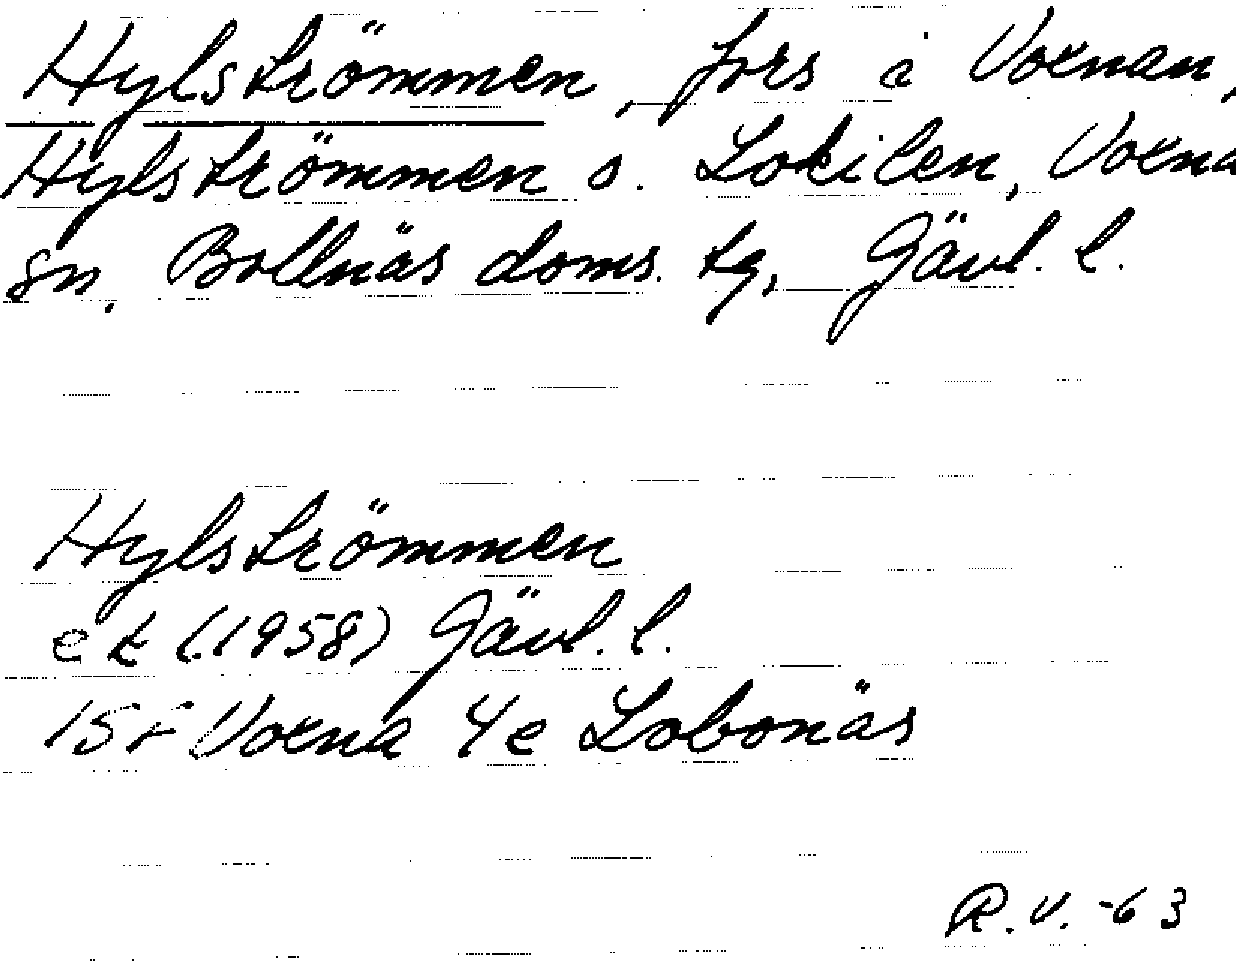 Hylströmmen, fors i Voxnan,
Hylströmmen o. Lokilen, Voxna
sn. Bollnäs doms. tg, Gävl. l.
Hylströmmen
ek (1958) Gävl. l.
15F Voxna 4e Lobonäs
R.V. -63